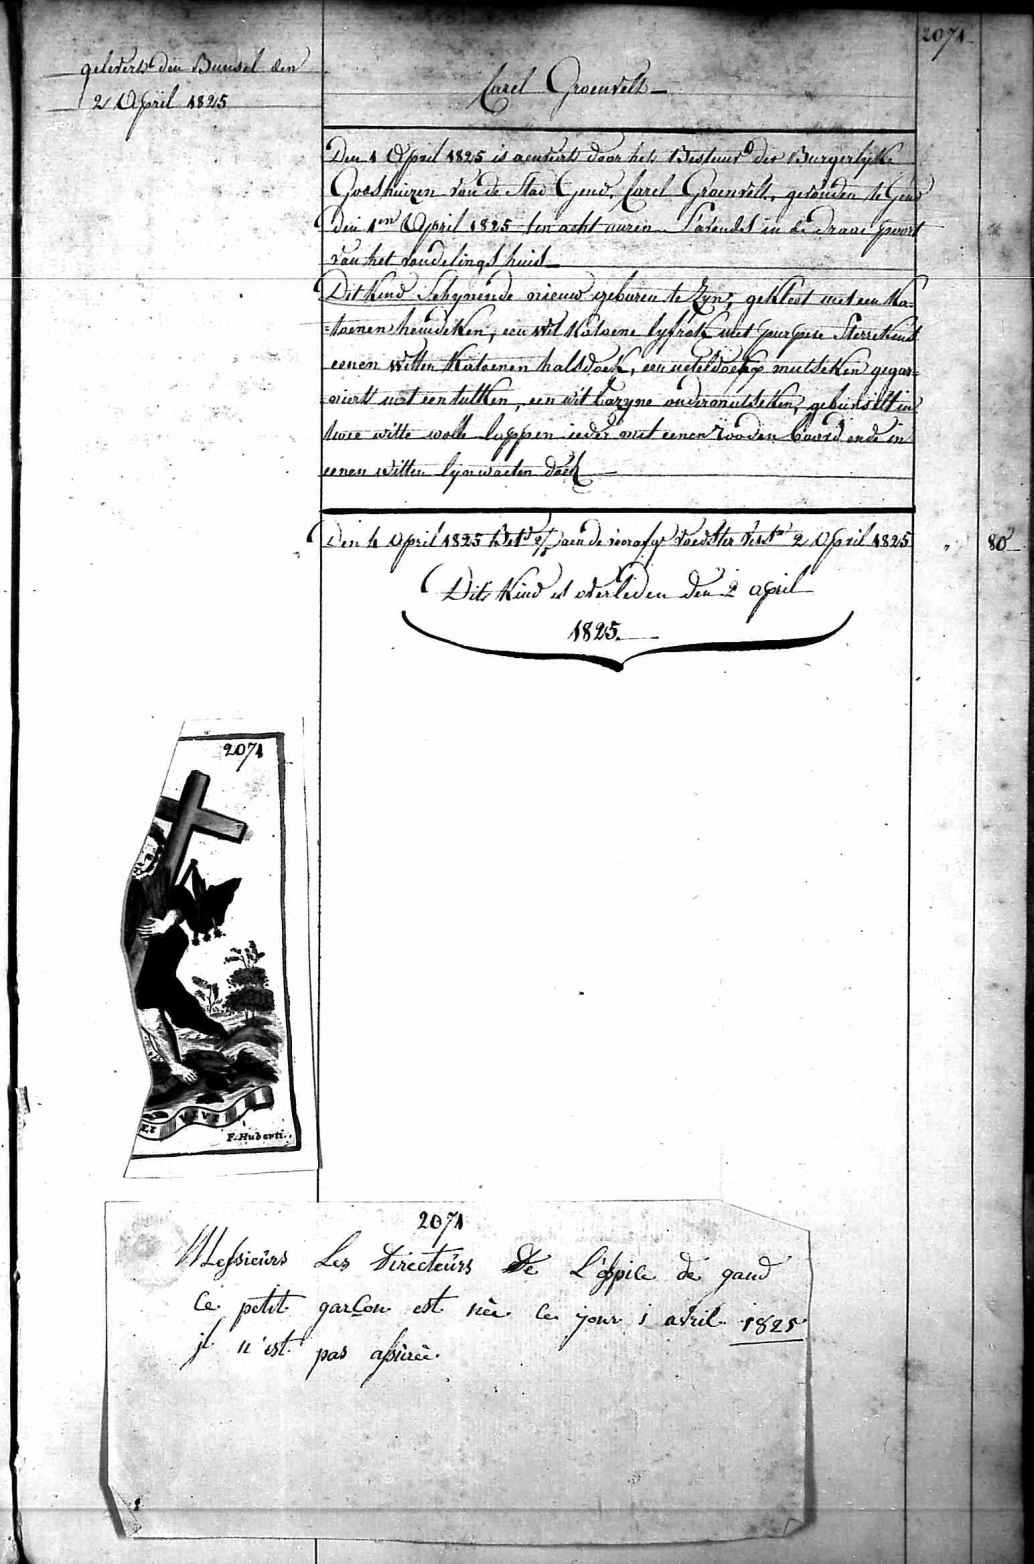 2071
gelevert den Bunsel den
2 April 1825
Carel Groenvelt
Den 1 April 1825 is aenveirt door het Bestuur der Burgerlyke
Godshuizen van de Stad Gend, Carel Groenvelt, gevonden te Gend
den 1en April 1825 ten acht uuren S'avonds in de draeipoort
van het vondelingshuis
Dit Kind Schynende nieuw geboren te Zyn, gekleet met een Ka-
=toenen hemdeken, een wit Katoene lyfrok met purpere Sterrekens
eenen witten Katoenen halsdoek, een neteldoekx mutseken gegar-
=niert met een tulken, een wit bazyne ondermutseken, gebunselt in
twee witte wolle lappen ieder met eenen rooden boord ende in
eenen witten lynwaeten doek
Den 4 April 1825 aen de voorafge Voedster 2 April 1825 " 80
Dit Kind is overleden den 2 april
1825.
2071
ET VIVE
F. Huberti.
2071
Messieurs Les Directeurs De L'ospice de gand
Ce petit garçon est née ce jour 1 avril 1825
jl n'est pas assurée